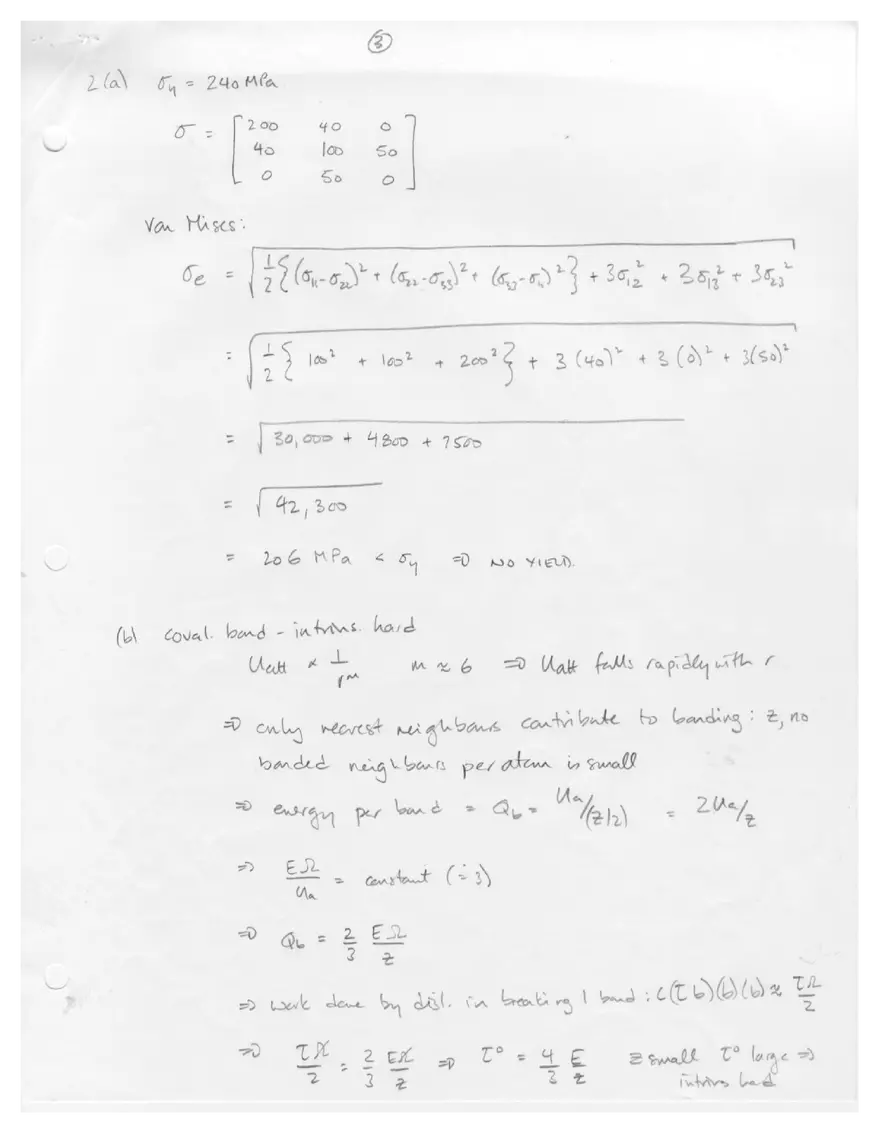 ③
2(a) σy = 240 MPa
σ = [200 40 0
40 100 50
0 50 0]
Von Mises:
σe = √(½{(σ11-σ22)² + (σ22-σ33)² + (σ33-σ11)²} + 3σ12² + 3σ13² + 3σ23²)
= √(½{100² + 100² + 200²} + 3(40)² + 3(0)² + 3(50)²)
= √(30,000 + 4800 + 7500)
= √(42,300)
= 206 MPa < σy ⇒ NO YIELD.
(b) coval. bond - intrins. hard
Uatt ∝ 1/r^m m ≈ 6 ⇒ Uatt falls rapidly with r
⇒ only nearest neighbours contribute to bonding: z, no
bonded neighbours per atom is small
⇒ energy per bond = Qb = Ua/(z/2) = 2Ua/z
⇒ EΩ/Ua = constant (≐ 3)
⇒ Qb = 2/3 EΩ/z
⇒ work done by disl. in breaking 1 bond: c(τb)(b)(b) ≈ τΩ/2
⇒ τΩ/2 = 2/3 EΩ/z ⇒ τ° = 4/3 E/z z small τ° large ⇒
intrins hard